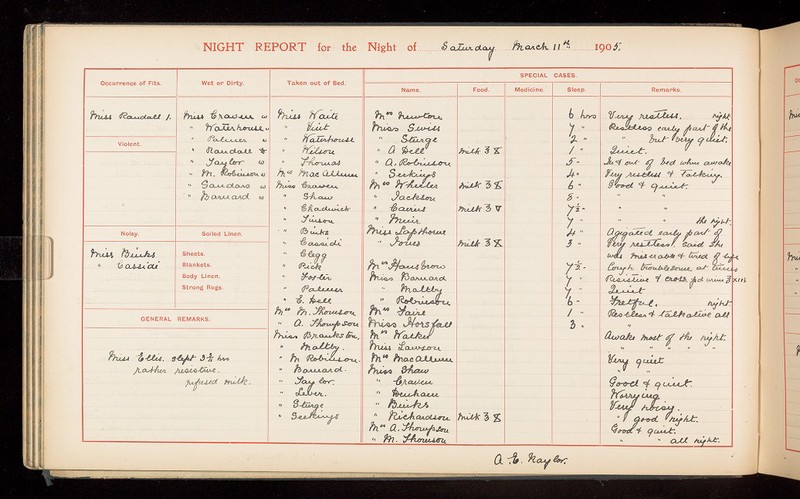 NIGHT REPORT for the Night of Saturday March 11th 1905.
SPECIAL CASES.
Occurrence of Fits. Wet or Dirty. Taken out of Bed. Name. Food. Medicine. Sleep. Remarks.
Miss Randall 1.
Violent.
Noisy.
Miss Binks
" Cassidi
Miss Craven w
" Waterhouse w
" Palmer w
" Randall
" Taylor w
" M. Robinson w
" Sandars w
" Barnard w
Soiled Linen.
Sheets.
Blankets.
Body Linen.
Strong Rugs.
GENERAL REMARKS.
Miss Ellis. slept 3½ hrs
rather resistive.
refused milk.
Miss Waite
" Vint
" Waterhouse
" Wilson
" Thomas
Mrs Mac Allum
Miss Craven
" Shaw
" Chadwick
" Tinson
" Binks
" Cassidi
" Clegg
" Rick
" Foster
" Palmer
" E. Bell
Mrs M. Thomson
" A. Thompson
Miss Brankston,
" Maltby.
" M Robinson.
" Barnard.
" Taylor.
" Lever.
" Sturge
" Seekings
Mrs Newton 6 hrs Very restless. night
Miss Swiss 7 " Restless early part of the
" Sturge 2 " " but very quiet.
" A Bell milk 3 1 " Quiet.
" A. Robinson 5 " In & out of bed when awake
" Seekings 4 " Very restless & Talking.
Mrs Wheeler milk 3 6 " Good & quiet.
" Jackson 8 " " "
" Cairns milk 3 7½ " " "
" Muir 7 " " " the night.
Miss Lapthorne 4 " Agitated early part of
" Jones milk 3 3 " Very restless. said she
was miserable & tired of life
Mrs 7½ " Cough troublesome at times
Miss Barnard 7 " Resistive & cross
" Maltby 7 " Quiet
" Robinson 6 " Fretful. night
Mrs Faire 1 " Restless & talkative all
Miss Horsfall 3 "
Mrs Walker Awake most of the night.
Miss Lawson " " "
Mrs MacAllum Very quiet
Miss Shaw " "
" Craven Good & quiet.
" Denham Worrying.
" Binks Very noisy.
" Richardson milk 3 " good night.
Mrs A. Thompson Good & quiet.
" M. Thomson " " all night.
A. E. Naylor.